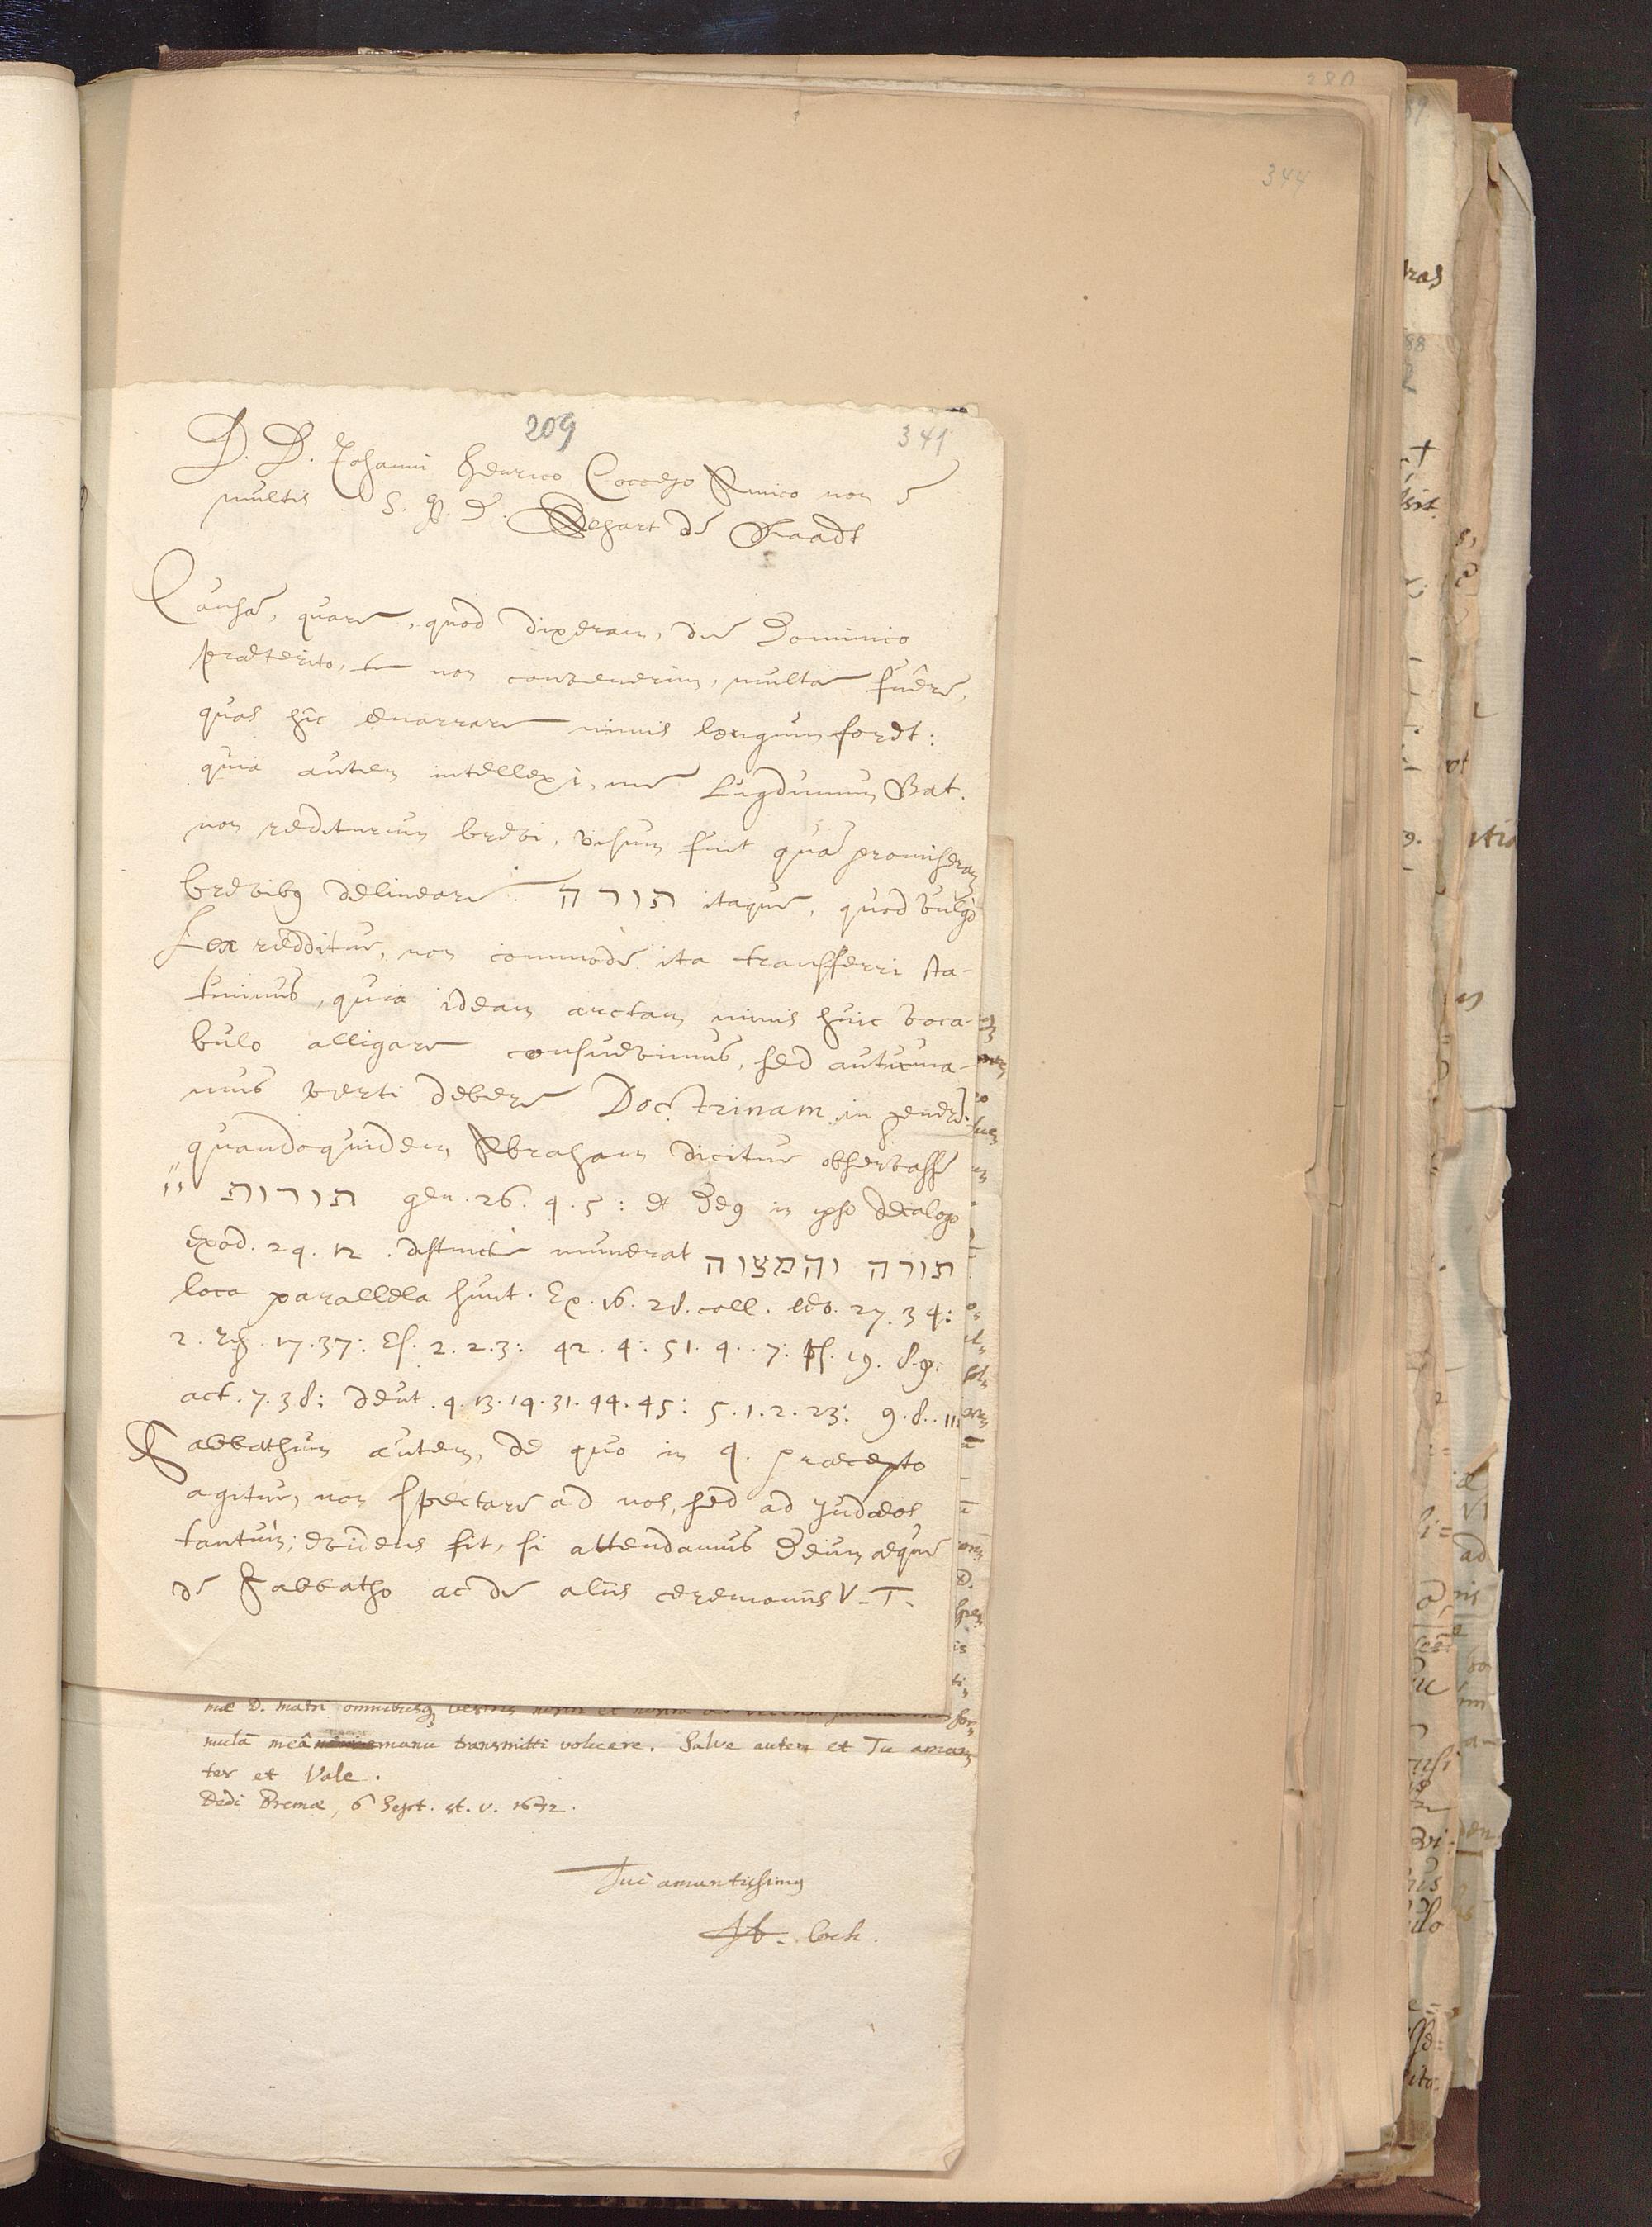 280
344
209
341
D. D. Johanni Henrico Coccejo Amico non è
multis S. P. D. de Raadt
Causae, quare, quod dixeram, die Dominico
praeterito, te non convenerim, multae fuêre,
quas hîc enarrare nimis longum foret:
quia autem intellexi, me Lugdunum Bat.
non rediturum brevi, visum fuit quae promiseram
brevibus delineare. תורה itaque, quod vulgò
Lex redditur, non commodè ita transferri sta-
tuimus, quia ideam arctam nimis huic voca-
bulo alligare consuevimus, sed autuma-
mus verti debere Doctrinam in genere:
quandoquidem Abraham dicitur observasse
תורות יי gen. 26. 4. 5: et Deus in ipso decalogo
Exod. 24. 12. distinctè numerat תורה והמצוה
loca parallela sunt. Ex. 16. 28. coll. Lev. 27. 34:
2. Reg. 17. 37: Es. 2. 2. 3: 42. 4: 51. 4. .7: Ps. 19. 8. 9.
act. 7. 38: Deut. 4. 13. 14. 31. 44. 45: 5. 1. 2. 23: 9. 8. . 11.
Sabbathum autem, de quo in 4. praecepto
agitur, non spectare ad nos, sed ad Judaeos
tantùm; evidens fit, si attendamus Deum aeque
de Sabbatho ac de aliis ceremoniis V. T.
mae D. matri omnibusq vestris
mulâ meâ manu transmitti voluere. Salve autem et Tu aman
ter et Vale.
Dedi Bremae, 6 Sept. st. v. 1672.
Tui amantissimus
Coch.